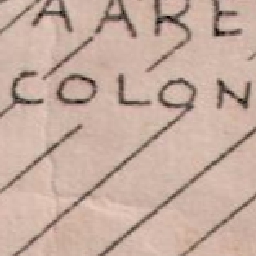 AARE
COLON